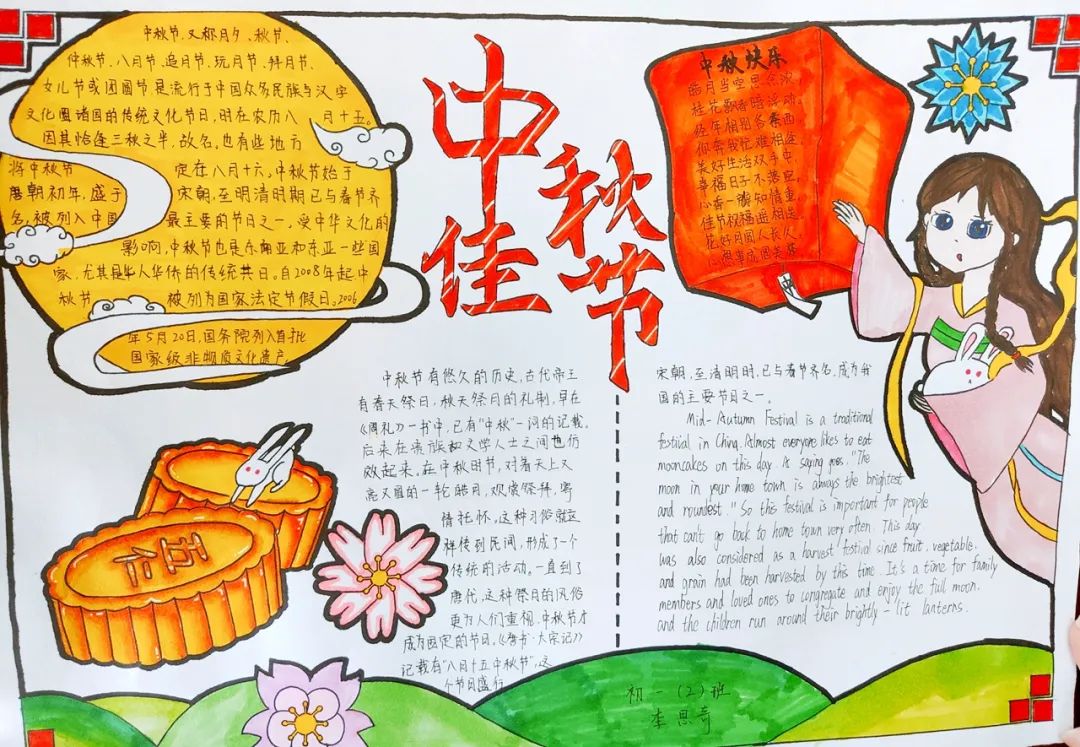 中秋佳节
中秋节、又称月夕、秋节、
仲秋节、八月节、追月节、玩月节、拜月节、
女儿节或团圆节是流行于中国众多民族与汉字
文化圈诸国的传统文化节日,时在农历八 月十五。
因其恰逢三秋之半,故名。也有些地方
将中秋节 定在八月十六。中秋节始于
唐朝初年,盛于 宋朝,至明清时期已与春节齐
名,被列入中国 最主要的节日之一,受中华文化的
影响,中秋节也是东南亚和东亚一些国
家,尤其是华人华侨的传统共日。自2008年起中
秋节 被列为国家法定节假日。2006
年5月20日,国务院列入首批
国家级非物质文化遗产
中秋快乐
皓月当空思念浓,
桂花飘香暗浮动。
佳年相别各东西,
你奔我忙难相逢。
美好生活双手中,
幸福日子不落空。
心香一瓣知情重,
佳节祝福遥相送。
花好月圆人长久,
心想事成
五仁
中秋节有悠久的历史,古代帝王
有春天祭日,秋天祭月的礼制,早在
《周礼》一书中,已有“中秋”一词的记载。
后来在贵族和文学人士之间也仿
效起来。在中秋时节,对着天上又
亮又圆的一轮皓月,观赏祭拜,寄
情托怀,这种习俗就这
样传到民间,形成了一个
传统的活动。一直到了
唐代,这种祭月的风俗
更为人们重视,中秋节才
成为固定的节日。《唐书·太宗记》
记载有“八月十五中秋节”,这
个节日盛行
宋朝,至清明时,已与春节齐名,成为我
国的主要节日之一。
Mid-Autumn Festival is a traditional
festival in China. Almost everyone likes to eat
mooncakes on this day. A saying goes, "The
moon in your home town is always the brightest
and roundest" So this festival is important for people
that can't go back to home town very often. This day
was also considered as a harvest festival since fruit, vegetable,
and grain had been harvested by this time. It's a time for family
members and loved ones to congregate and enjoy the full moon.
and the children run around their brightly-lit lanterns.
初一(2)班
李思奇